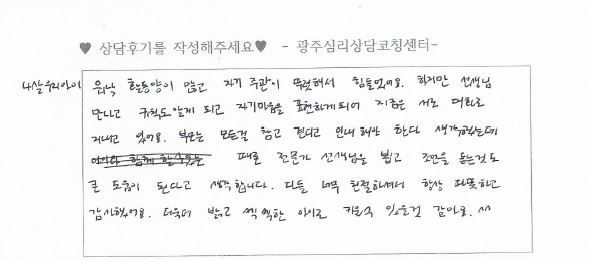 ♥ 상담후기를 작성해주세요♥ - 광주심리상담코칭센터-
4살 우리아이 워낙 활동양이 많고 자기 주관이 뚜렷해서 힘들었어요. 하지만 선생님
만나고 규칙도 알게 되고 자기마음을 표현하게되어 지금은 서로 대화로
지내고 있어요. 부모는 모든걸 참고 견디고 인내해야 한다 생각했는데
때로 전문가 선생님을 뵙고 조언을 듣는것도
큰 도움이 된다고 생각합니다. 다들 너무 친절하셔서 항상 따뜻하고
감사했어요. 더욱더 밝고 씩씩한 아이로 키울수 있을것 같아요. ^^